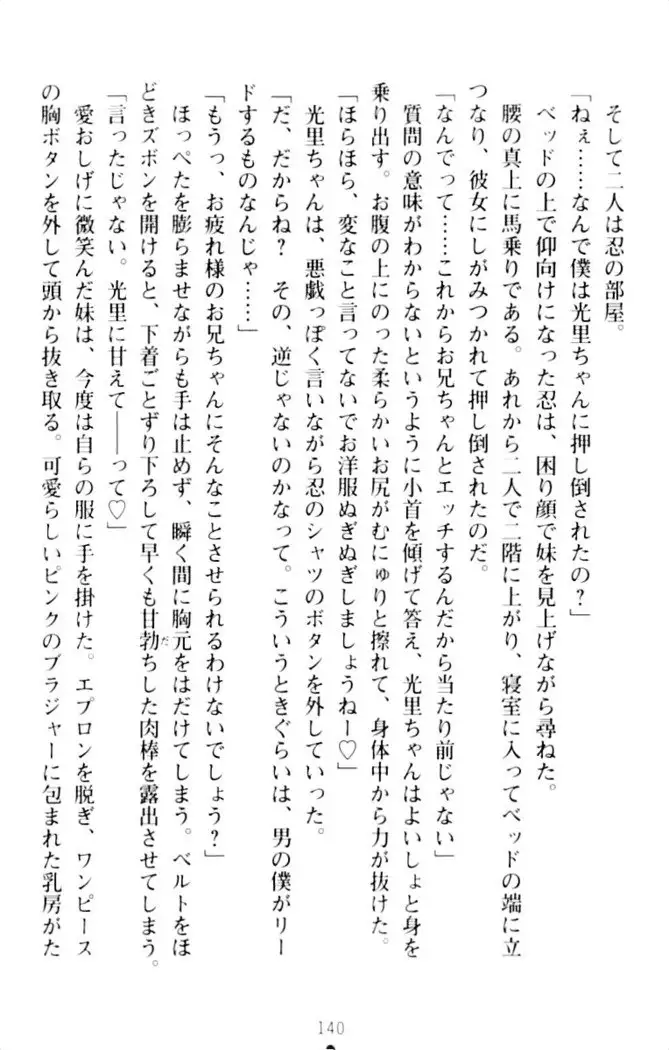 そして二人は忍の部屋。
「ねぇ……なんで僕は光里ちゃんに押し倒されたの？」
ベッドの上で仰向けになった忍は、困り顔で妹を見上げながら尋ねた。
腰の真上に馬乗りである。あれから二人で二階に上がり、寝室に入ってベッドの端に立
つなり、彼女にしがみつかれて押し倒されたのだ。
「なんでって……これからお兄ちゃんとエッチするんだから当たり前じゃない」
質問の意味がわからないというように小首を傾げて答え、光里ちゃんはよいしょと身を
乗り出す。お腹の上にのった柔らかいお尻がむにゅりと擦れて、身体中から力が抜けた。
「ほらほら、変なこと言ってないでお洋服ぬぎぬぎしましょうねー♡」
光里ちゃんは、悪戯っぽく言いながら忍のシャツのボタンを外していった。
「だ、だからね？　その、逆じゃないのかなって。こういうときぐらいは、男の僕がリー
ドするものなんじゃ……」
「もうっ、お疲れ様のお兄ちゃんにそんなことさせられるわけないでしょう？」
ほっぺたを膨らませながらも手は止めず、瞬く間に胸元をはだけてしまう。ベルトをほ
どきズボンを開けると、下着ごとずり下ろして早くも甘勃だちした肉棒を露出させてしまう。
「言ったじゃない。光里に甘えて――って♡」
愛おしげに微笑んだ妹は、今度は自らの服に手を掛けた。エプロンを脱ぎ、ワンピース
の胸ボタンを外して頭から抜き取る。可愛らしいピンクのブラジャーに包まれた乳房がた
140